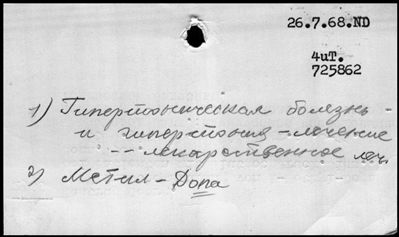 26.7.68.ND
4иТ.
725862
1) Гипертоническая болезнь -
и гипертония - лечение
-- лекарственное леч.
2) Метил-Допа